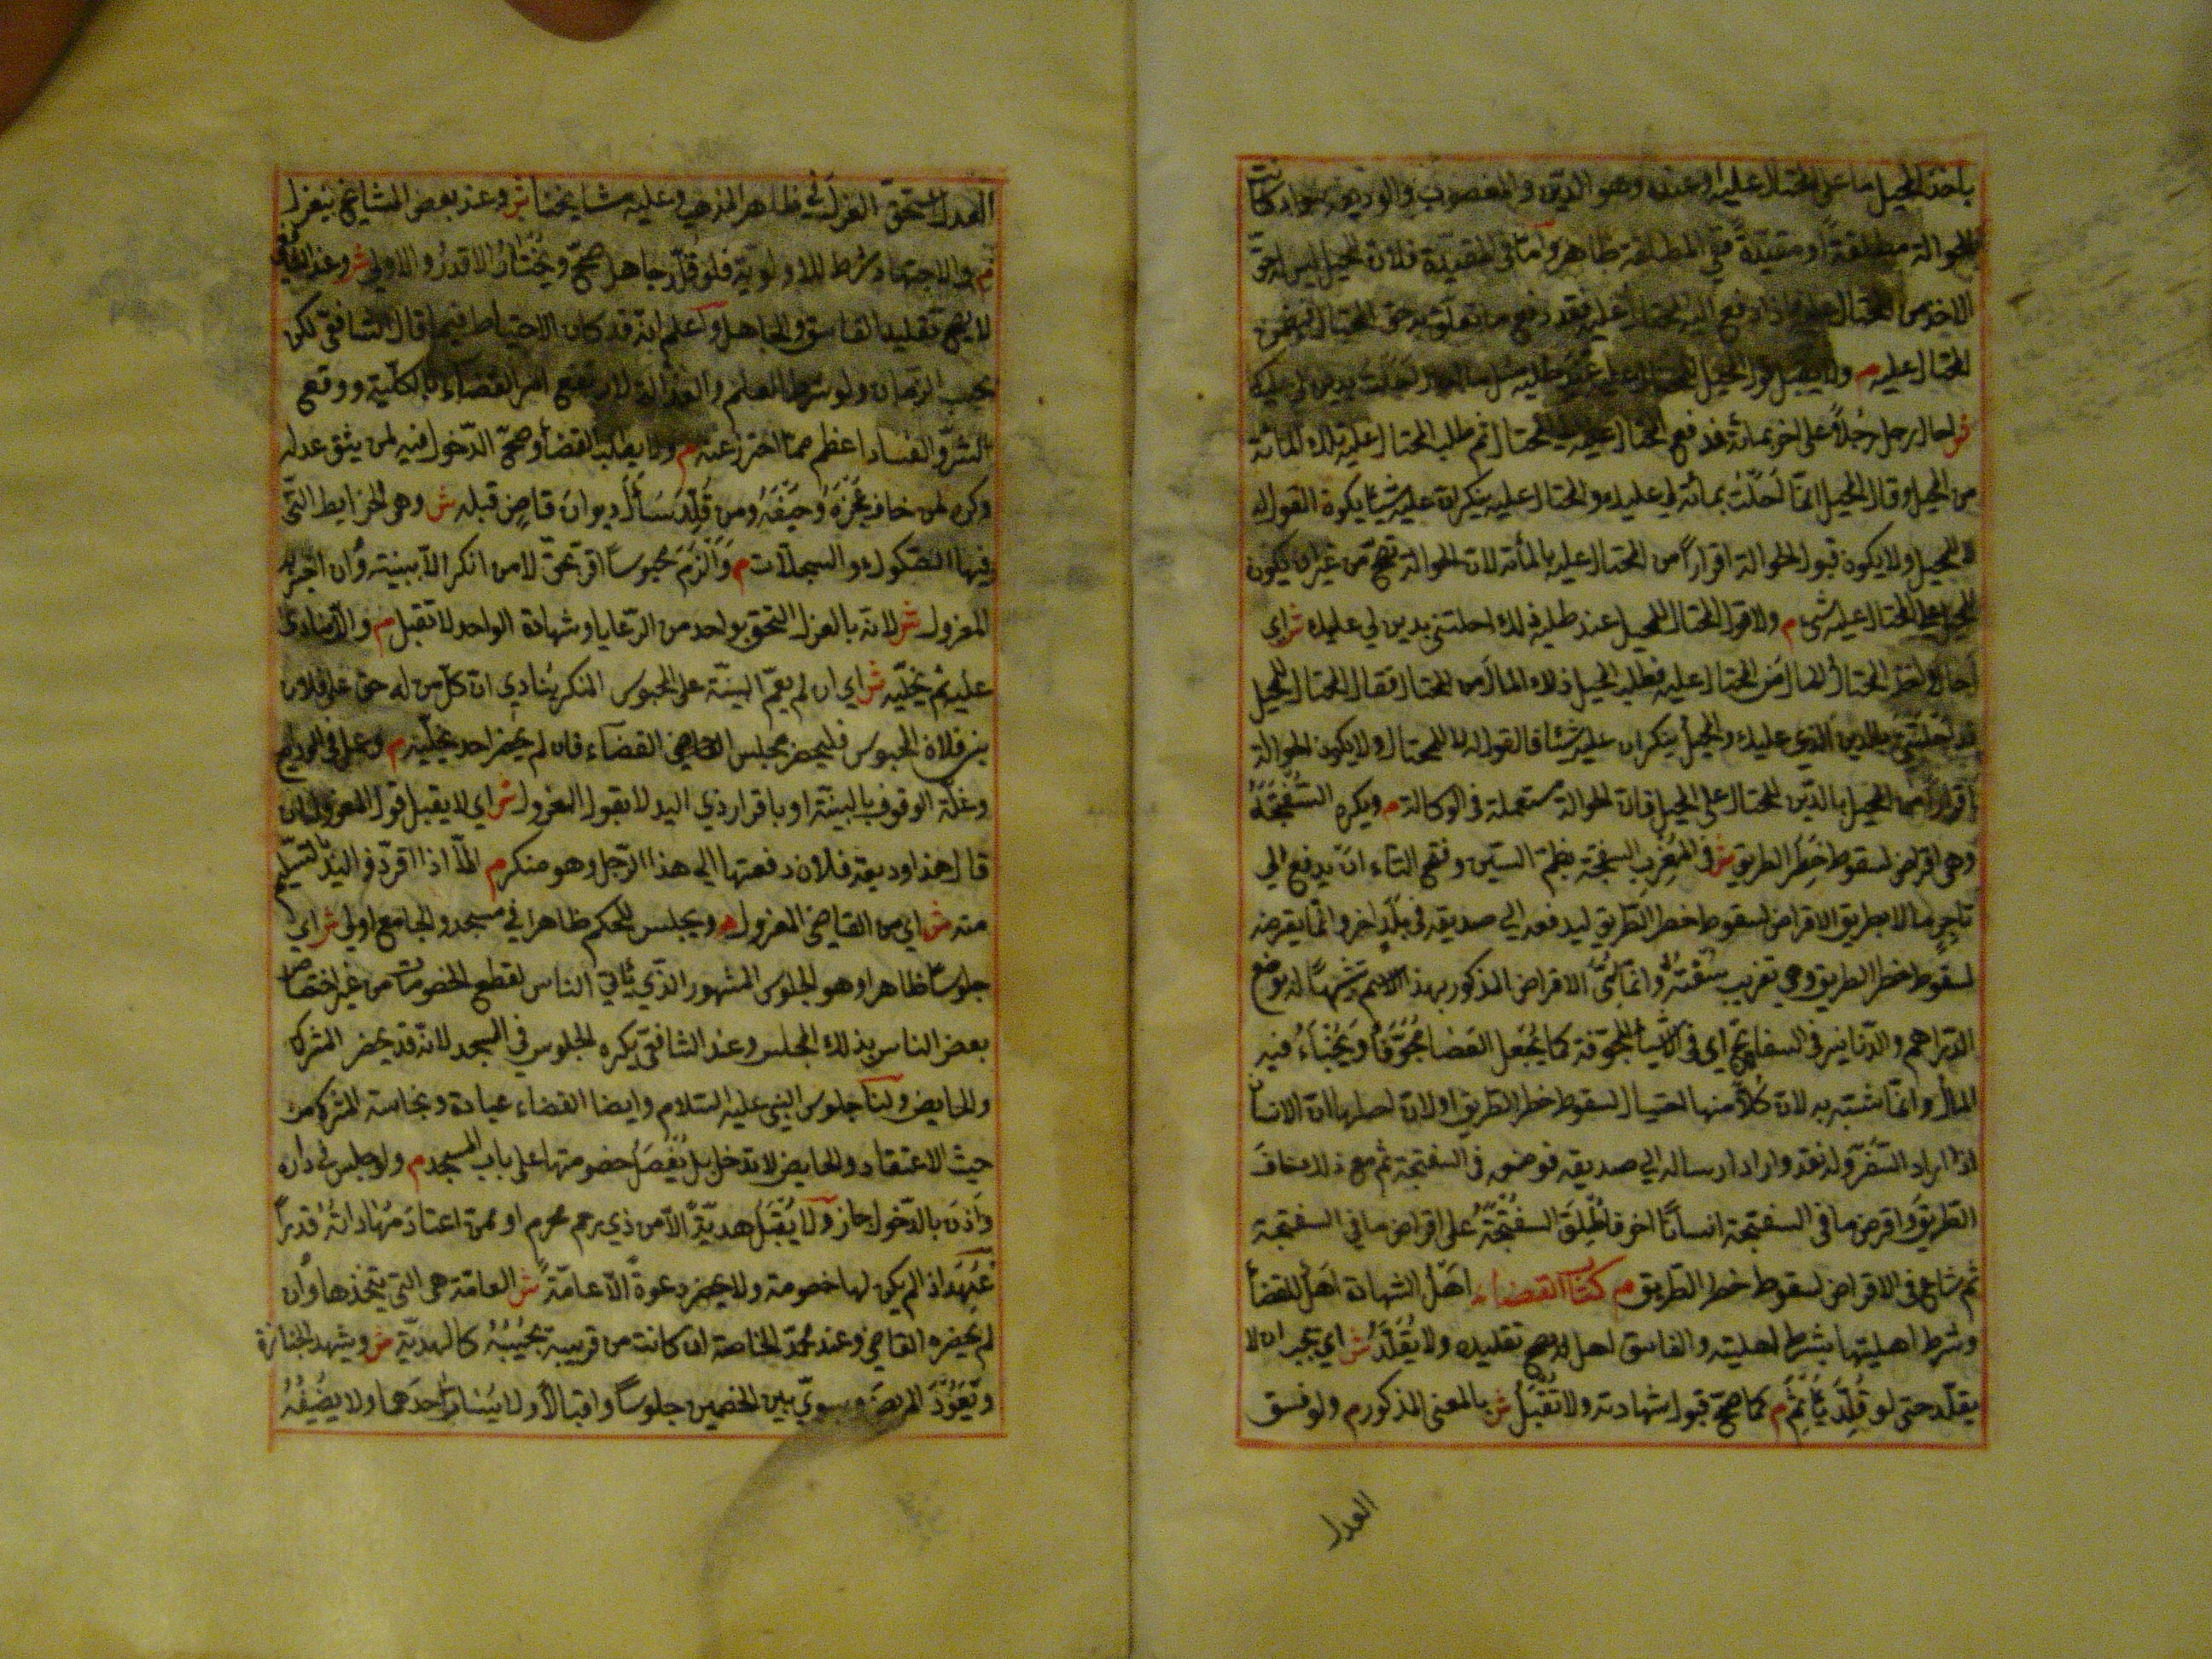 باخذ المحيل ما على المحتال عليه او عنده وهو الدين والمغصوب والوديعة سواء كانت
الحوالة مطلقة او مقيدة ففي المطلقة ظاهر واما في المقيدة فلان المحيل ليس له حق
الاخذ من المحتال عليه فاذا دفع اليه المحتال عليه فقد دفع ما تعلق به حق المحتال فيضمن
المحتال عليه م ولا يقبل قول المحيل للمحتال عليه عند طلبه مثل ما احال احلت بدين لي عليك
ش احال رجل رجلاً على اخر بمائة فدفع المحتال عليه الى المحتال ثم طلب المحتال عليه تلك المائة
من المحيل وقال المحيل انما احلت بمائة لي عليك والمحتال عليه ينكر ان عليه شيئا يكون القول له
لا للمحيل ولا يكون قبول الحوالة اقراراً من المحتال عليه بالمأئة لان الحوالة تصح من غير ان يكون
للمحيل على المحتال عليه شئ م ولا قول المحتال للمحيل عند طلبه ذلك احلتني بدين لي عليك ش اي
احال واخذ المحتال المال من المحتال عليه فطلب المحيل ذلك المال من المحتال فقال المحتال للمحيل
قد احلتني بالدين الذي عليك والمحيل ينكر ان عليه شيئا فالقول له لا للمحتال ولا يكون الحوالة
اقراراً من المحيل بالدين للمحتال على المحيل فان الحوالة مستعملة في الوكالة م ويكره السفتجة
وهي اقراض لسقوط خطر الطريق ش في المغرب السفتجة بضم السين وفتح التاء ان يدفع الى
تاجر مالا بطريق الاقراض لسقوط خطر الطريق ليدفعه الى صديقه في بلد اخر وانما يقرضه
لسقوط خطر الطريق وهي تعريب سفته وانما سمي الاقراض المذكور بهذا الاسم تشبيها له بوضع
الدراهم والدنانير في السفاتج اي في الاشياء المجوفة كما يجعل العصا مجوفا ويخباء فيه
المال وانما شبته به لان كلا منها احتيال لسقوط خطر الطريق او لان اصلها ان الانسان
اذا اراد السفر وله نقد واراد ارساله الى صديقه فوضعه في السفتجة ثم مع ذلك خاف
الطريق واقرض ما في السفتجة انسانا اخر فاطلق السفتجة على اقراض ما في السفتجة
ثم شاع في الاقراض لسقوط خطر الطريق م كتاب القضاء اهل الشهادة اهل للقضأ
وشرط اهليتها شرط اهليته والفاسق اهل له يصح تقليده ولا يقلد ش اي يجب ان لا
يقلد حتى لو قلد يأثم م كما صح قبول شهادته ولا تقبل ش بالمعنى المذكور م ولو فسق
العدل
العدل استحق العزل في ظاهر المذهب وعليه مشايخنا ش وعند بعض المشايخ ينعزل
م والاجتهاد شرط للاولوية فلو قلد جاهل صح ويختار الاقدر والاولى ش وعند الشافعي
لا يصح تقليد الفاسق والجاهل واعلم انه قد كان الاحتياط فيما قال الشافعي لكن
بحسب الزمان ولو شرط العلم والعدالة لارتفع امر القضاء بالكلية ووقع
الشر والفساد اعظم مما احترز عنه م ولا يطلب القضا وصح الدخول فيه لمن يثق عدله
وكره لمن خاف عجزه وحيفه ومن قلد سأل ديوان قاض قبله ش وهو الخرايط التي
فيها الصكوك والسجلات م والزم محبوسا اقر بحق لا من انكر الا ببينة وان اخبر به
المعزول ش لانه بالعزل التحق بواحد من الرعايا وشهادة الواحد لا تقبل م والا ينادى
عليه ثم يخليه ش اي ان لم يقم البينة على المحبوس المنكر ينادي ان كل من له حق على فلان
بن فلان المحبوس فليحضر مجلس القاضي القضاء فان لم يحضر احد يخليه م وعمل في الودايع
وغلة الوقوف بالبينة او باقرار ذي اليد لا بقول المعزول ش اي لا يقبل قول المعزول ان
قال هذا وديعة فلان دفعتها الي هذا الرجل وهو منكر م الا اذا اقر ذو اليد بالتسليم
منه ش اي من القاضي المعزول م ويجلس للحكم ظاهرا في مسجد والجامع اولى ش اي
جلوسا ظاهرا وهو الجلوس المشهور الذي يأتي الناس لقطع الخصومات من غير اختصاص
بعض الناس بذلك المجلس وعند الشافعي يكره الجلوس في المسجد لانه قد يحضر المشرك
والحايض ولنا جلوس النبي عليه السلام وايضا القضاء عبادة ونجاسة المشرك من
حيث الاعتقاد والحايض لا تدخل بل يفصل خصومتها على باب المسجد م ولو جلس في داره
واذن بالدخول جاز ولا يقبل هدية الا من ذي رحم محرم او ممن اعتاد مهاداته قدرا
عهد اذا لم يكن لها خصومة ولا يحضر دعوة الا عامة ش العامة هي التي يتخذها وان
لم يحضره القاضي وعند محمد الخاصة ان كانت من قريبه يجيبه كالهدية ش ويشهد الجنازة
ويعود المريض ويسوي بين الخصمين جلوسا واقبالا ولا يسار احدهما ولا يضيفه